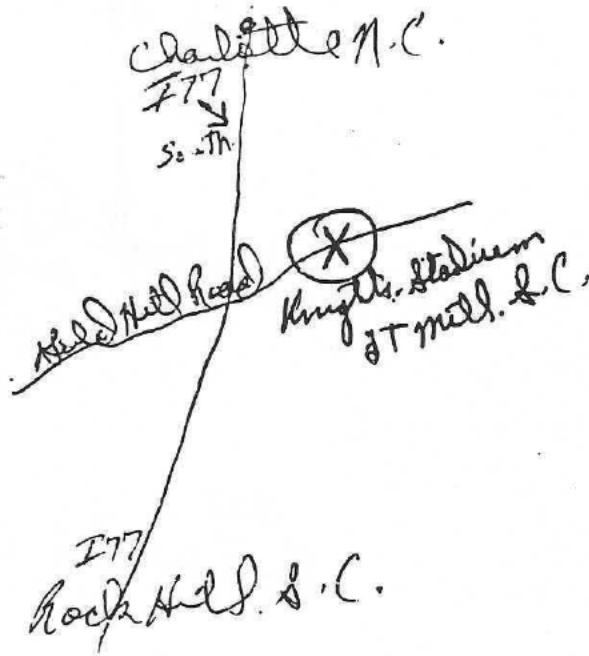 Charlotte N.C.
I77
South
X
Gold Hill Road
Knights Stadium
FT Mill. S.C.
I77
Rock Hill. S.C.